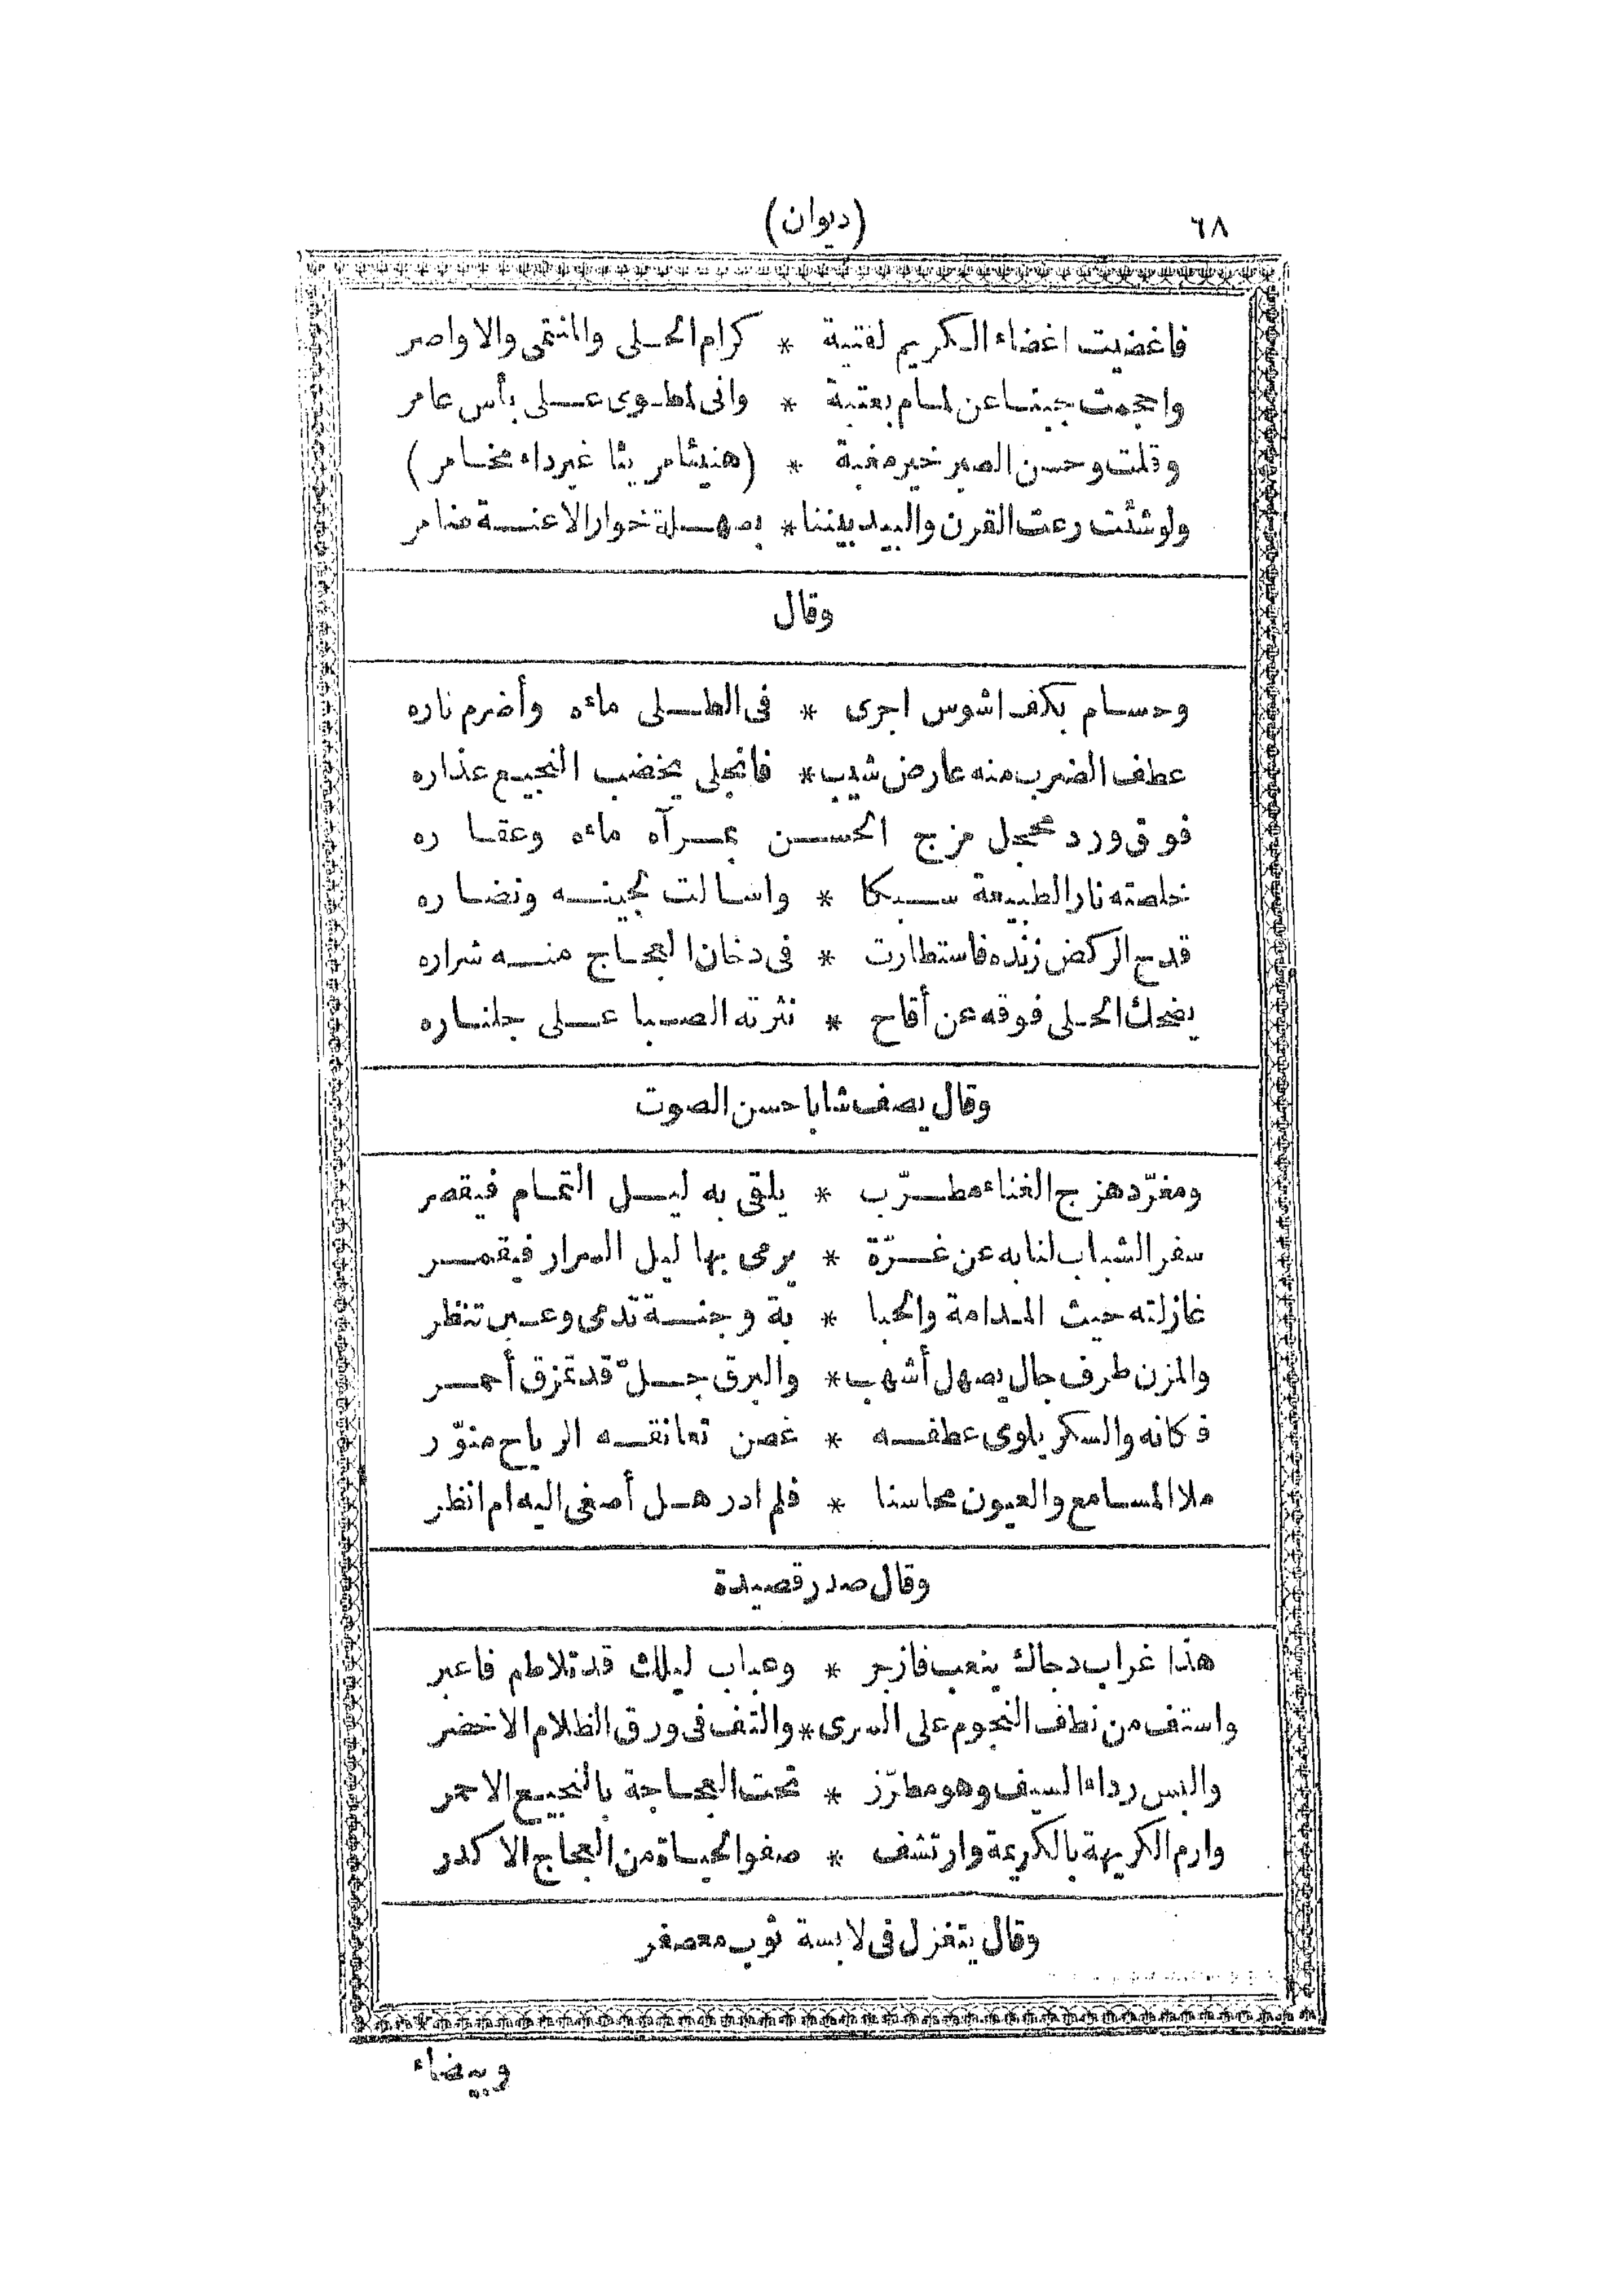 ٦٨
(ديوان)
فاغضيت اغضاء الكريم لفتية * كرام الحلى والمنتمى والاواصر
واحجمت جبنا عن لمام بعتبة * وانى لمطوى على بأس عامر
وقلت وحسن الصبر خير مغبة * (هنيئا مريئا غير داء مخامر)
ولو شئت رعت القرن والبيد بيننا * بصهلة خوار الاعنة ضامر
وقال
وحسام بكف اشوس اجرى * فى الطلى ماءه وأضرم ناره
عطف الضرب منه عارض شيب * فانجلى يخضب النجيع عذاره
فوق ورد محجل مزج الحسن بمرآه ماءه وعقاره
خلصته نار الطبيعة سبكا * واسالت لجينه ونضاره
قدح الركض زنده فاستطارت * فى دخان العجاج منه شراره
يضحك الحلى فوقه عن أقاح * نثرته الصبا على جلناره
وقال يصف شابا حسن الصوت
ومغرّد هزج الغناء مطرّب * يلقى به ليل التمام فيقصر
سفر الشباب لنا به عن غرّة * يرمى بها ليل السرار فيقمر
غازلته حيث المدامة والحبا * بة وجنة تدمى وعين تنظر
والمزن طرف جال يصهل أشهب * والبرق جلّ قد تمزق أحمر
فكانه والسكر يلوى عطفه * غصن تعانقه الرياح منوّر
ملا المسامع والعيون محاسنا * فلم ادر هل أصغى اليه ام انظر
وقال صدر قصيدة
هذا غراب دجاك ينعب فازجر * وعباب ليلك قد تلاطم فاعبر
واستف من نطف النجوم على السرى * والتف فى ورق الظلام الاخضر
والبس رداء السيف وهو مطرّز * تحت العجاجة بالنجيع الاحمر
وارم الكريهة بالكريمة وارتشف * صفو الحياة من العجاج الاكدر
وقال يتغزل فى لابسة ثوب معصفر
وبيضاء